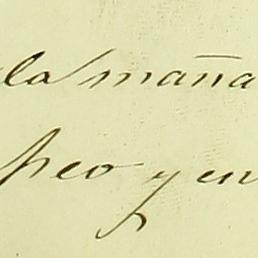 la maña
peo y en